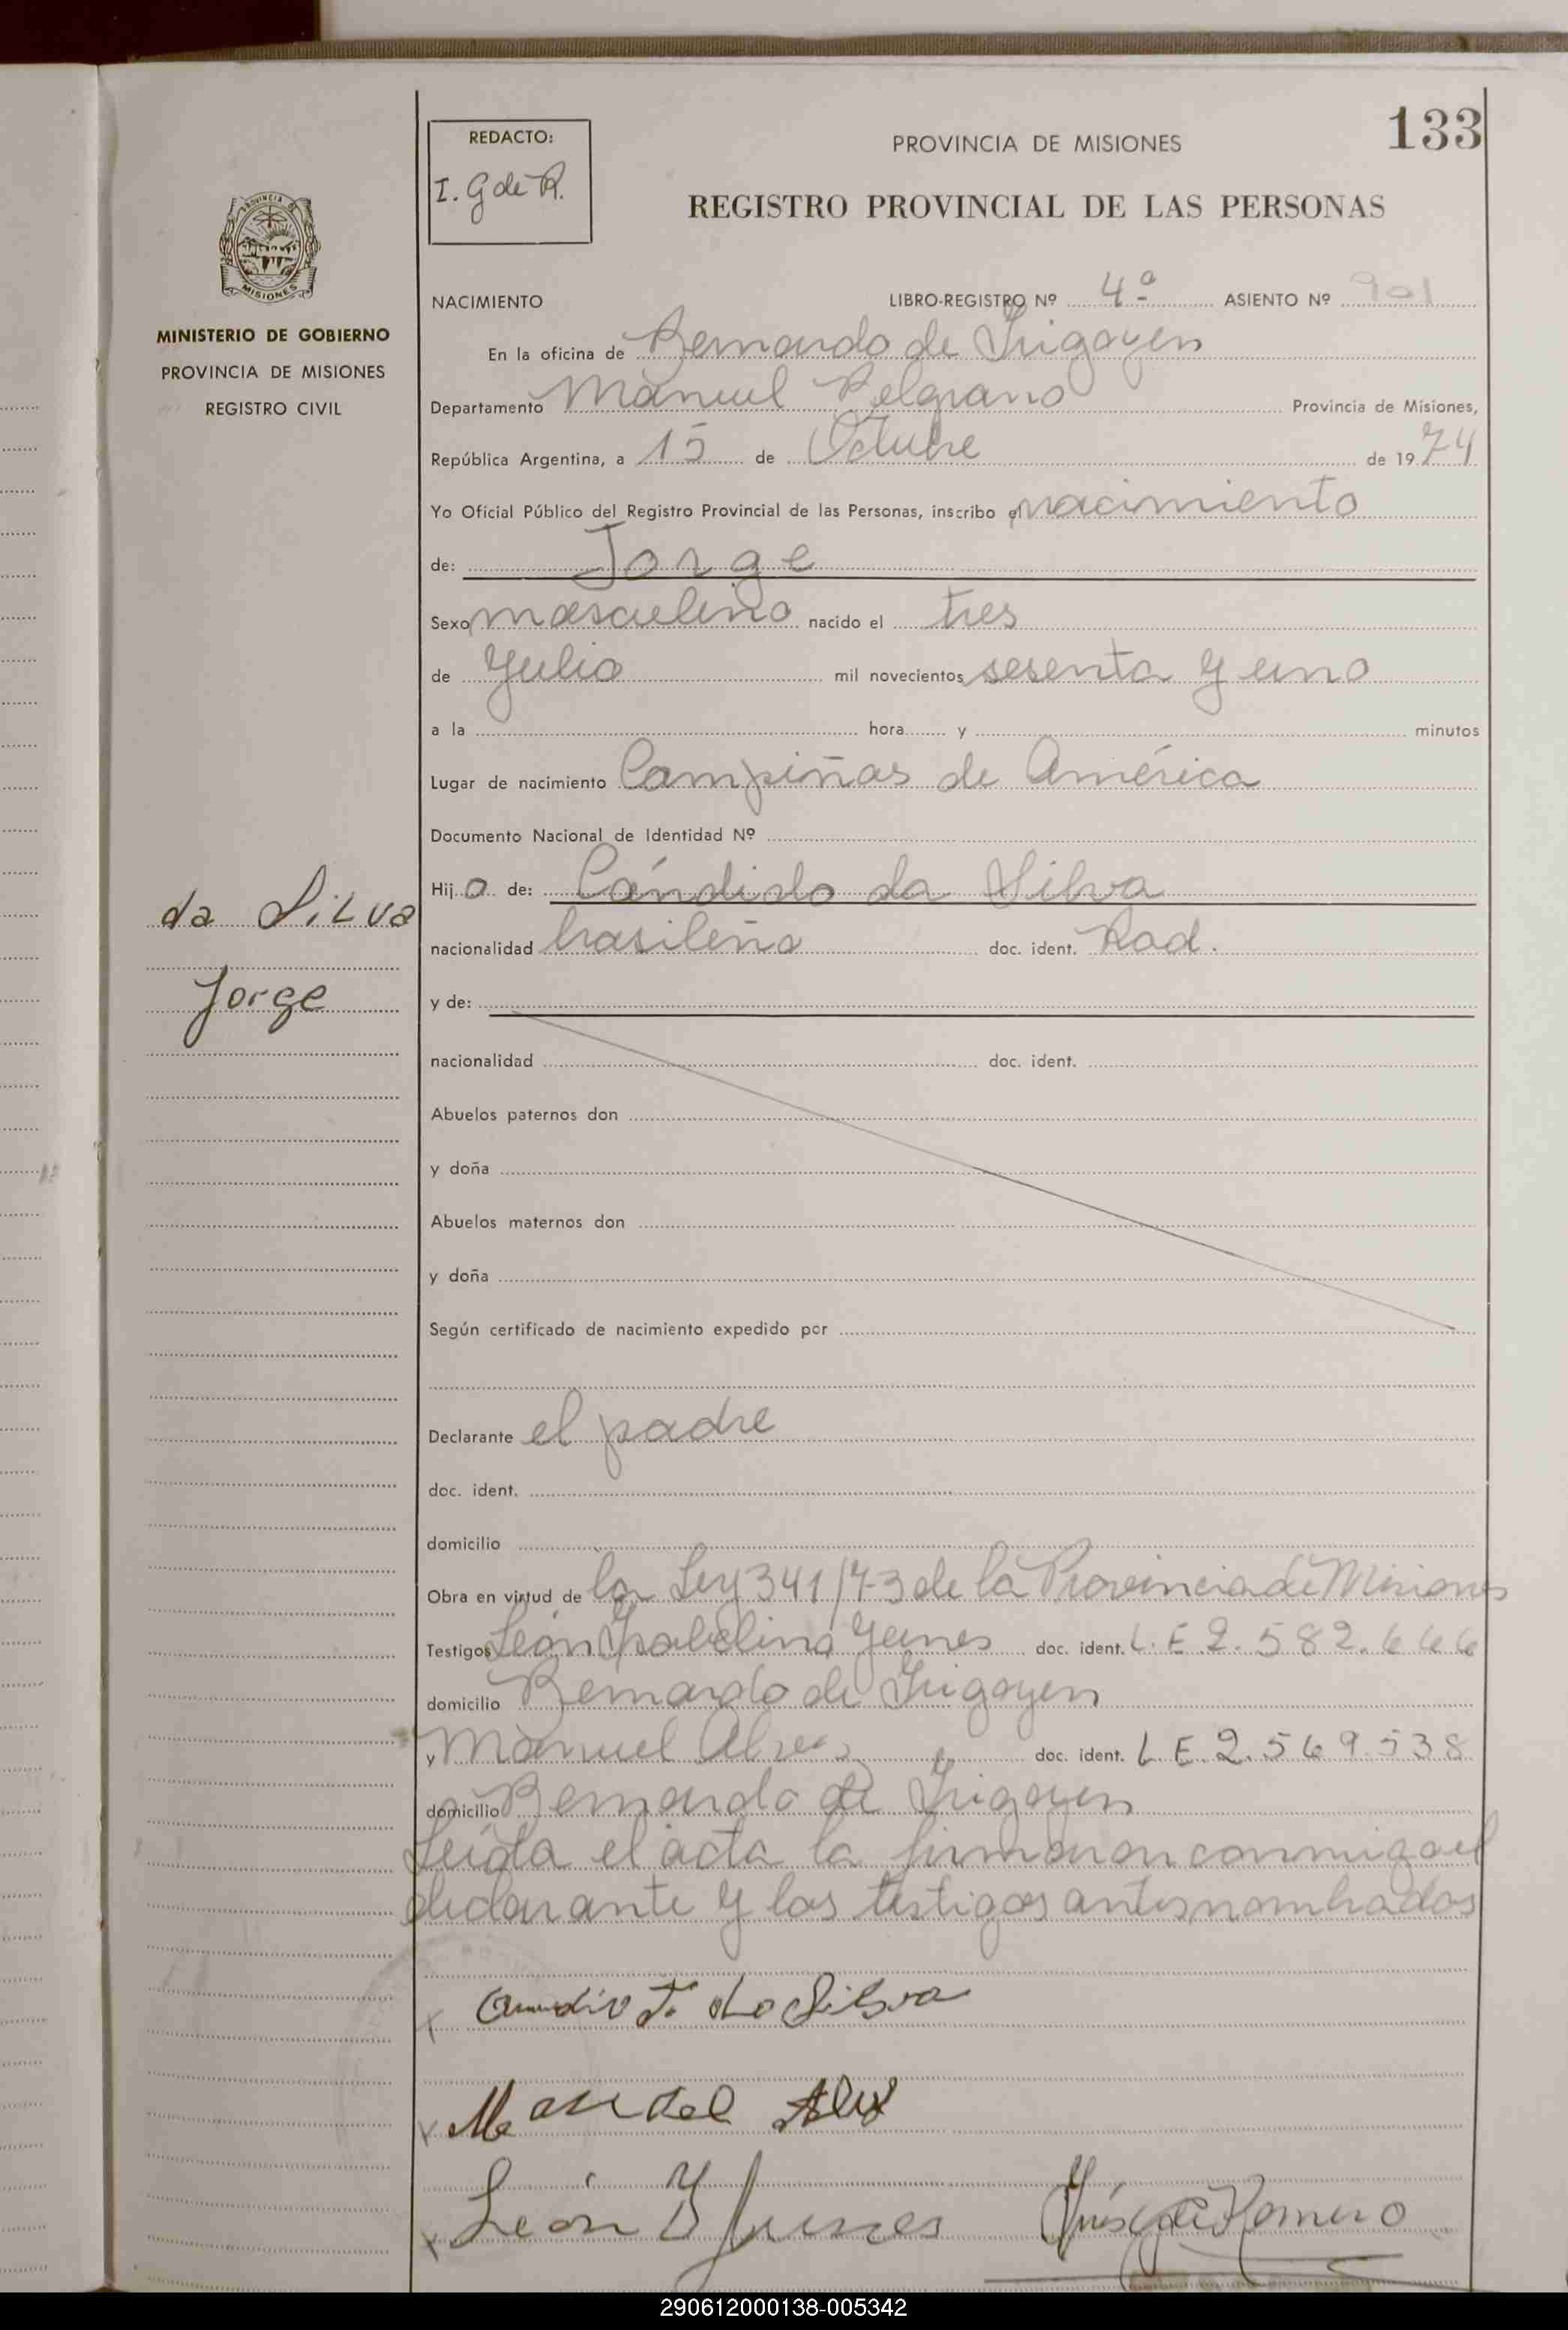 133
REDACTO:
I. G de R.
PROVINCIA DE MISIONES
REGISTRO PROVINCIAL DE LAS PERSONAS
PROVINCIA DE
MISIONES
MINISTERIO DE GOBIERNO
PROVINCIA DE MISIONES
REGISTRO CIVIL
NACIMIENTO LIBRO-REGISTRO Nº 4º ASIENTO Nº 901
En la oficina de Bernardo de Irigoyen
Departamento Manuel Belgrano Provincia de Misiones,
República Argentina, a 15 de Octubre de 1974
Yo Oficial Público del Registro Provincial de las Personas, inscribo el nacimiento
de: Jorge
Sexo masculino nacido el tres
de Julio mil novecientos sesenta y uno
a la hora y minutos
Lugar de nacimiento Campiñas de América
Documento Nacional de Identidad Nº
Hijo de: Cándido da Silva
da Silva
nacionalidad brasileña doc. ident. Rad.
Jorge
y de:
nacionalidad doc. ident.
Abuelos paternos don
y doña
Abuelos maternos don
y doña
Según certificado de nacimiento expedido por
Declarante el padre
doc. ident.
domicilio
Obra en virtud de la Ley 341/73 de la Provincia de Misiones
Testigos León Ysabelino Yunes doc. ident. L.E 2.582.666
domicilio Bernardo de Irigoyen
y Manuel Alves doc. ident. L E 2.569.538
domicilio Bernardo de Irigoyen
Leída el acta la firmaron conmigo el
declarante y los testigos antes nombrados
da Silva
Manuel
León Y Yunes Inés G de Romero
290612000138-005342